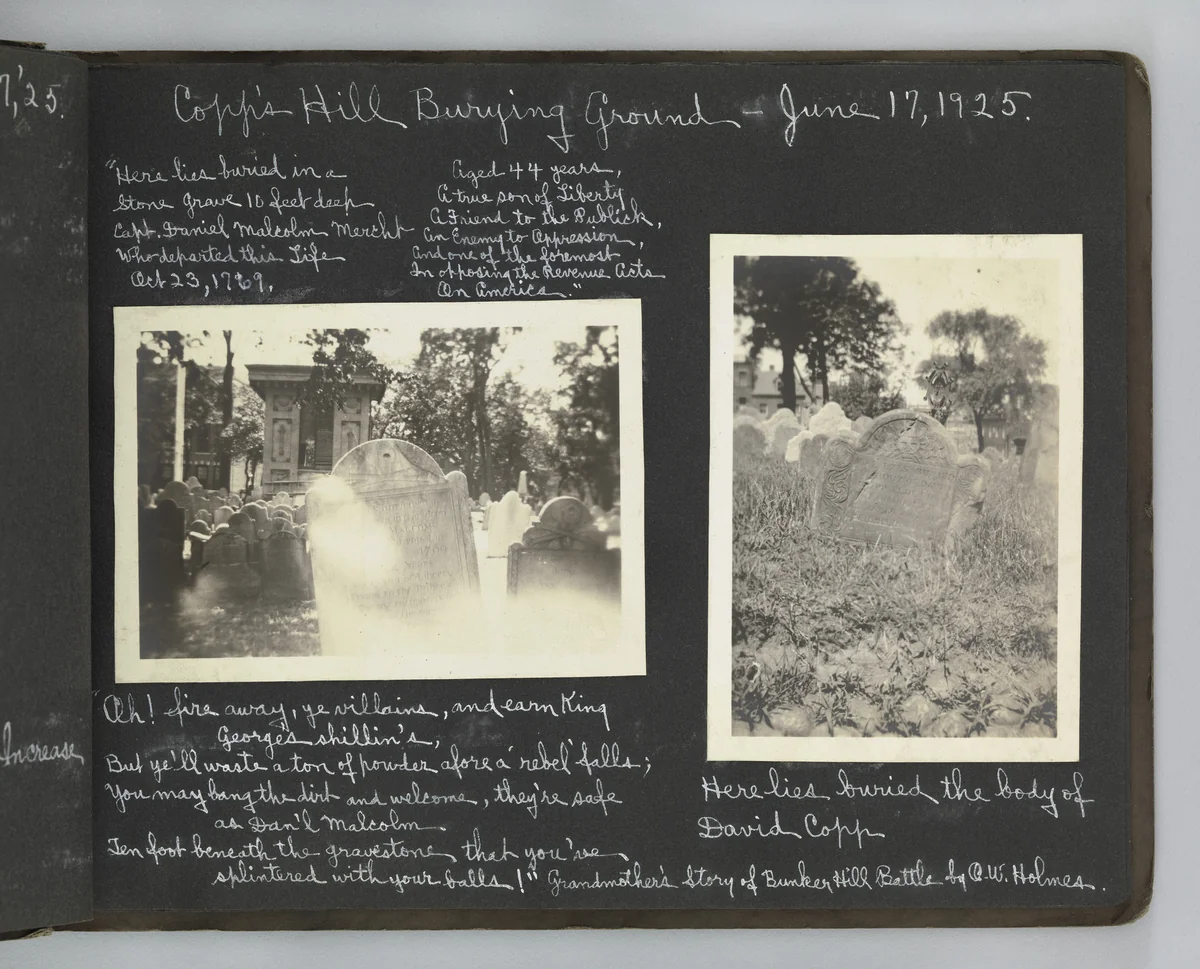 7,'25.
Increase
Copp's Hill Burying Ground - June 17, 1925.
"Here lies buried in a
Stone Grave 10 feet deep
Capt. Daniel Malcolm Mercht
Who departed this Life
Oct 23, 1769,
Aged 44 years,
A true son of Liberty
A Friend to the Publick,
An Enemy to Oppression,
And one of the foremost
In opposing the Revenue Acts
On America."
"Oh! fire away, ye villains, and earn King
George's shillin's,
But ye'll waste a ton of powder afore a 'rebel' falls;
You may bang the dirt and welcome, they're safe
as Dan'l Malcolm
Ten foot beneath the gravestone that you've
splintered with your balls!" Grandmother's Story of Bunker Hill Battle by O.W. Holmes.
Here lies buried the body of
David Copp